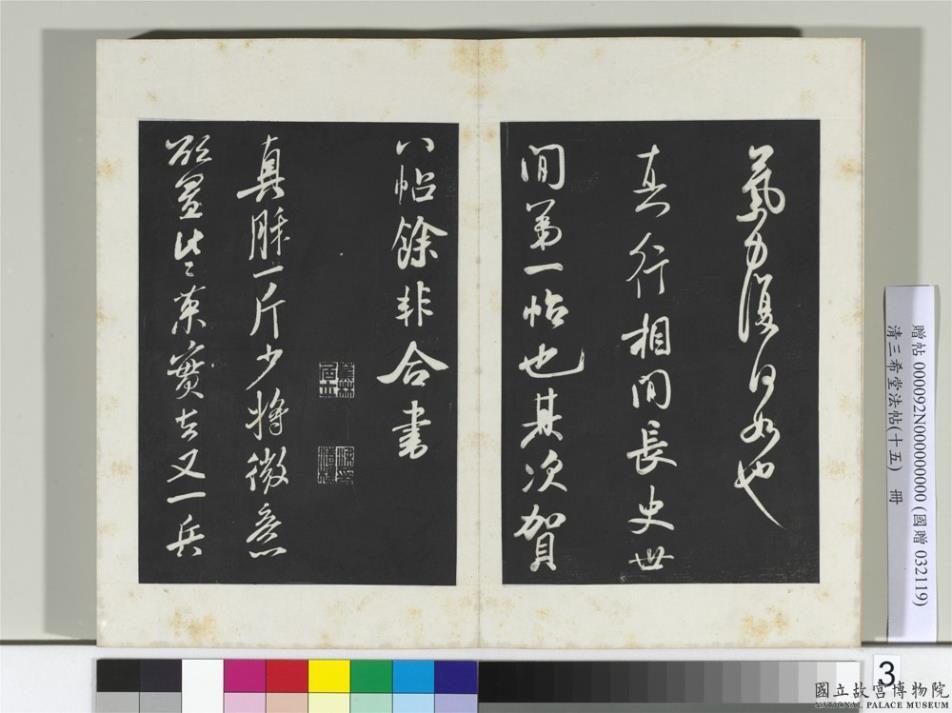 氣力復何如也
真行相間長史世
間第一帖也其次賀
八帖餘非合書
真酥一斤少將微意
欲置些果實去又一兵
贈帖 000092N000000000 (國贈 032119)
清三希堂法帖(十五) 冊
3
國立故宮博物院
NATIONAL PALACE MUSEUM